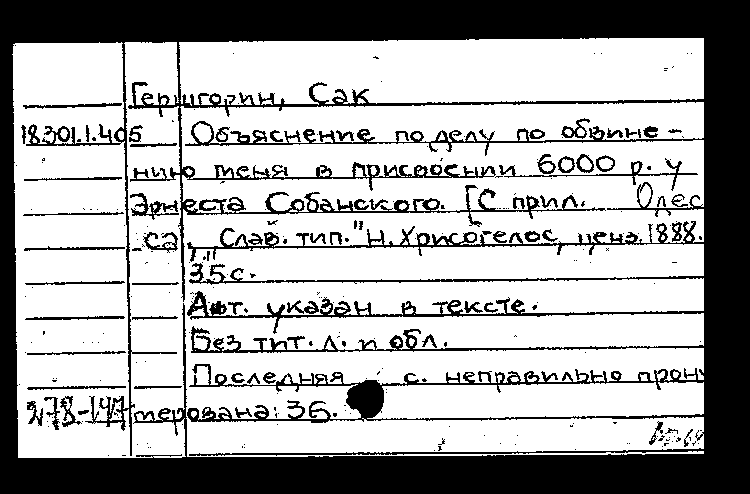 Гершгорин, Сак
18.301.1.405 Объяснение по делу по обвине-
нию меня в присвоении 6000 р. у
Эрнеста Собанского. [С прил. Одес
са, Слав. тип. "Н. Хрисогелос, ценз. 1888.
35 с.
Авт. указан в тексте.
Без тит. л. и обл.
Последняя с. неправильно прону
278-147 мерована: 36.